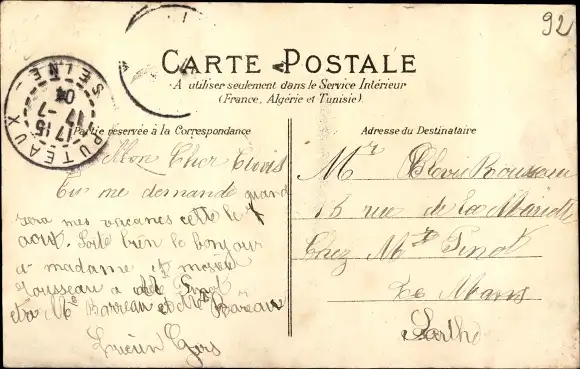 92
CARTE POSTALE
A utiliser seulement dans le Service Intérieur
(France, Algérie et Tunisie).
PUTEAUX
SEINE
17 15
17 -7
04
Partie réservée à la Correspondance
Mon Cher Clovis
Tu me demande quand
sera mes vacances cette le 7
aout. Soite bien le bonjour
a madame et
Rousseau a Pinot
Mr Barreau et Barreau
Lucien
Adresse du Destinataire
Mr Clovis Rousseau
15 rue de la Mariette
Chez Pinot
Le Mans
Sarthe